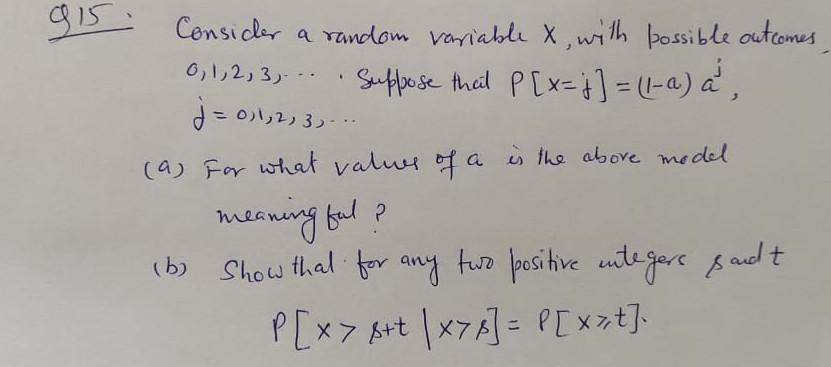 Q15.
Consider a random variable X, with possible outcomes,
0,1,2,3,.... Suppose that P[X=j] = (1-a) a^j,
j = 0,1,2,3,...
(a) For what values of a is the above model
meaningful?
(b) Show that for any two positive integers s and t
P[X > s+t | X > s] = P[X ≥ t].